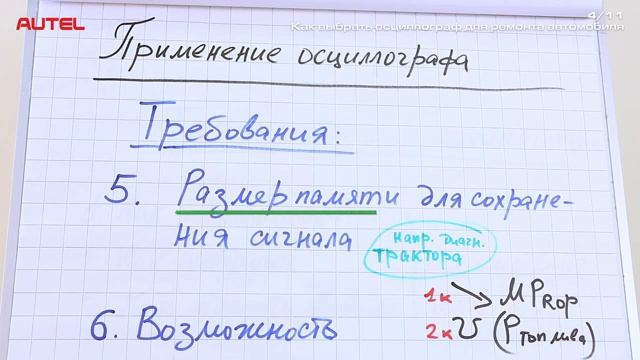 AUTEL
4/11
Как выбрать осциллограф для ремонта автомобиля
Применение осциллографа
Требования:
5. Размер памяти для сохране-
ния сигнала
напр. диагн.
трактора
1к MPкор
6. Возможность
2к U (Pтоплива)